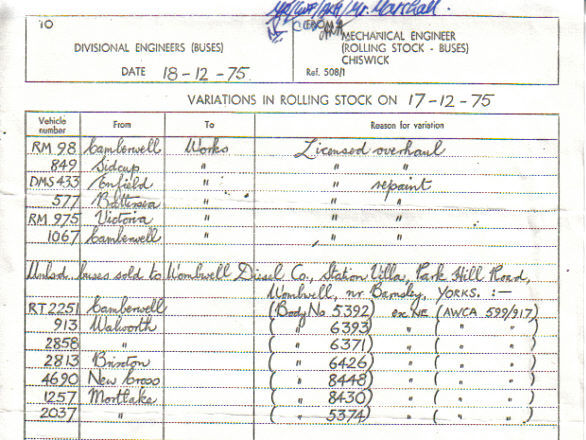 Mr. Marshall.
TO
FROM
DIVISIONAL ENGINEERS (BUSES)
MECHANICAL ENGINEER
(ROLLING STOCK - BUSES)
CHISWICK
DATE 18-12-75
Ref. 508/1
VARIATIONS IN ROLLING STOCK ON 17-12-75
Vehicle number From To Reason for variation
RM 98 Camberwell Works Licensed overhaul
849 Sidcup " " "
DMS 433 Enfield " " repaint
577 Battersea " " "
RM 975 Victoria " " "
1067 Camberwell " " "
Unlsd buses sold to Wombwell Diesel Co., Station Villa, Park Hill Road,
Wombwell, nr Barnsley, YORKS. :—
RT 2251 Camberwell (Body No 5392) ex NE (AWCA 599/917)
913 Walworth ( " 6393) ( " " )
2858 " ( " 6371) ( " " )
2813 Brixton ( " 6426) ( " " )
4690 New Cross ( " 8448) ( " " )
1257 Mortlake ( " 8430) ( " " )
2037 " ( " 5374) ( " " )